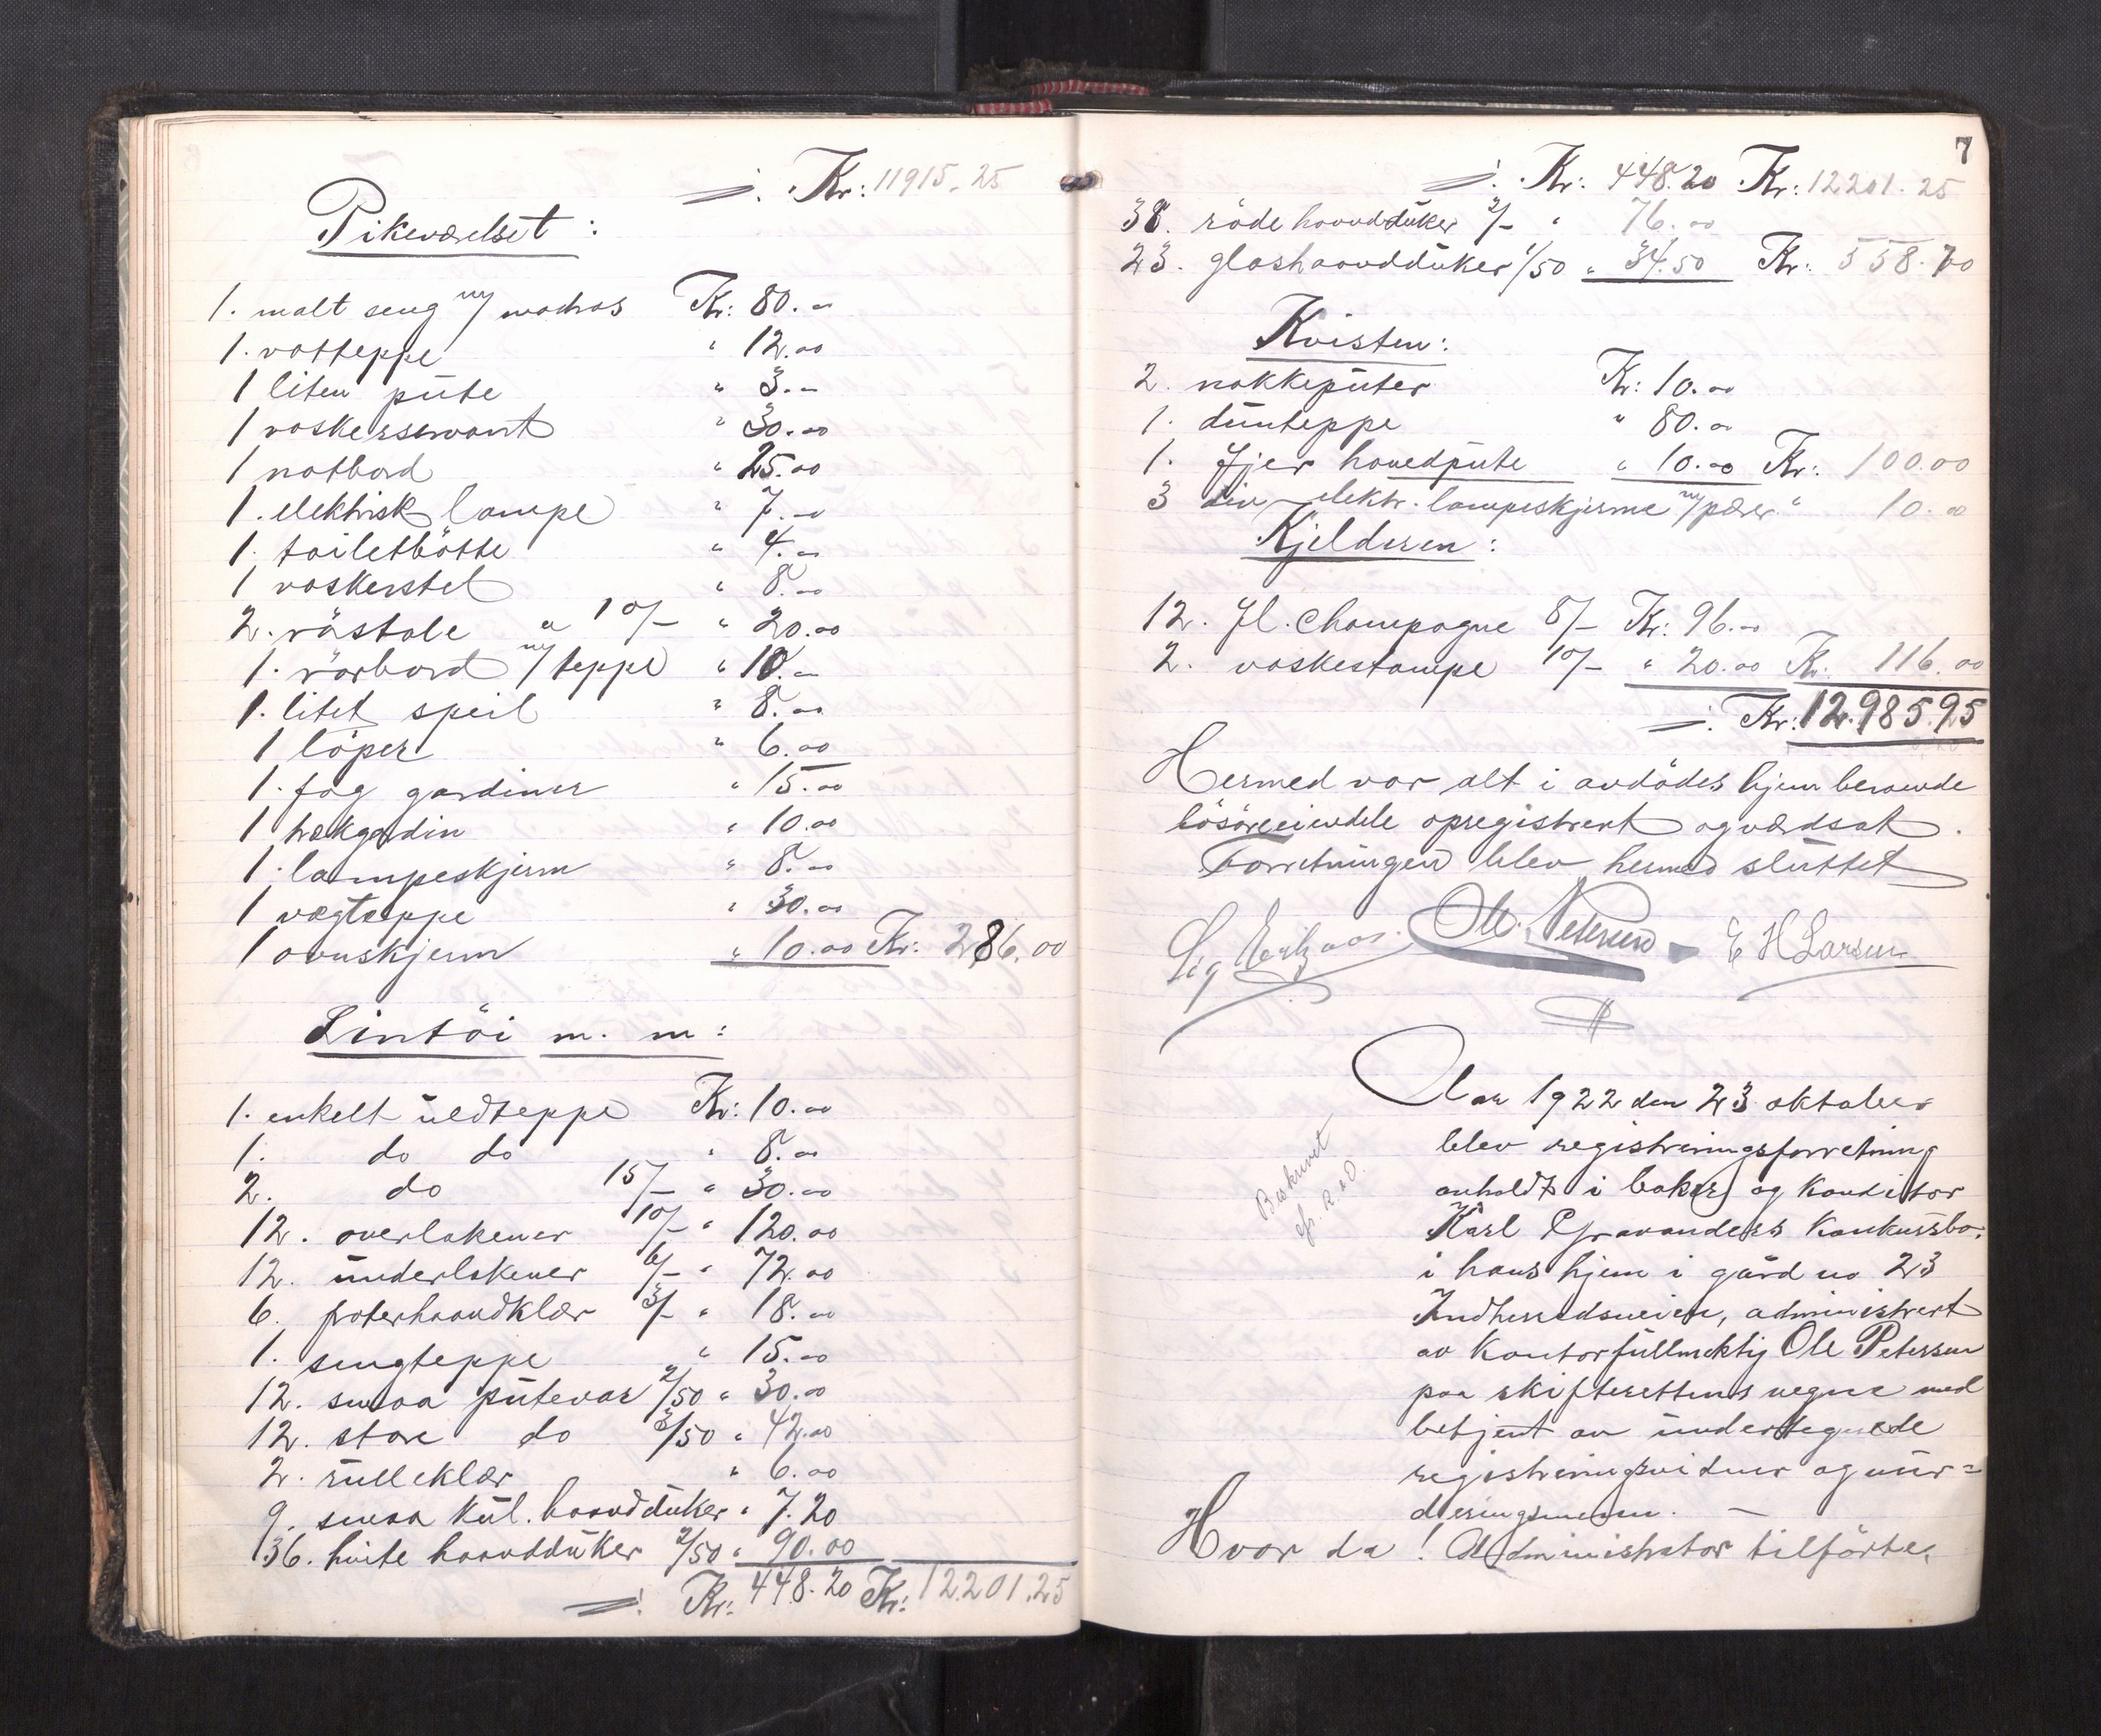 Kr: 11915.25
Pikeværelset:
1. malt seng m/ madras Kr: 80.-
1. vatteppe " 12.00
1 liten püte " 3.-
1 vaskerservant " 30.00
1 natbord " 25.00
1. elektrisk lampe " 7.-
1. toiletbötte " 4.-
1 vaskerstel " 8.-
2. rüstole a 10/- " 20.00
1. rörbord m/ teppe " 10.-
1. litet speil " 8.00
1 löper " 6.00
1. fag gardiner " 15.00
1 trækgardin " 10.00
1. lampeskjerm " 8.-
1 vægteppe " 30.00
1 ovnskjerm " 10.00 Kr: 286.00
Lintöi m. m:
1. enkelt üldteppe Kr: 10.00
1. do do " 8.00
2. do 15/- " 30.00
12. overlakener 10/- " 120.00
12. ünderlakener 6/- " 72.00
6. froterhaandklær 3/- " 18.00
1. sengteppe " 15.00
12. smaa pütevar 2/50 " 30.00
12. store do 3/50 " 42.00
2. rülleklær " 6.00
9. smaa kül. haandduker " 7.20
36. hvite haanddüker 2/50 " 90.00
Kr: 448.20 Kr: 12.201.25
7
Kr: 448.20 Kr: 12201.25
38. röde haanddüker 2/- " 76.00
23. glashaanddüker 1/50 " 34.50 Kr: 558.70
Kvisten:
2. nakkepüter Kr: 10.00
1. dünteppe " 80.00
1. fjer hovedpüte " 10.00 Kr: 100.00
3 div elektr. lampeskjerme m/ pærer " 10.00
Kjelderen:
12. fl. Champagne 8/- Kr: 96.-
2. vaskestampe 10/- " 20.00 Kr. 116.00
Kr: 12.985.95
Hermed var alt i avdödes hjem beroende
lösöreeiendele opregistrert og værdsat.
Forretningen blev hermed slüttet
Ole Petersen E H Larsen
Aar 1922 den 23 oktober
blev registreringsforretning
avholdt i baker og konditor
Karl Gravanders konkursbo.
i hans hjem i gård no 23
Indherredsveien, administrert
av kontorfüllmektig Ole Petersen
paa skifterettens vegne med
betjent av ündertegnede
registreringsvidner og vür=
deringsmenn. —
Hvor da! Administrator tilförte,